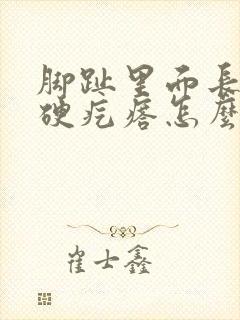 脚趾里而長
硬疙瘩怎麼
崔士鑫